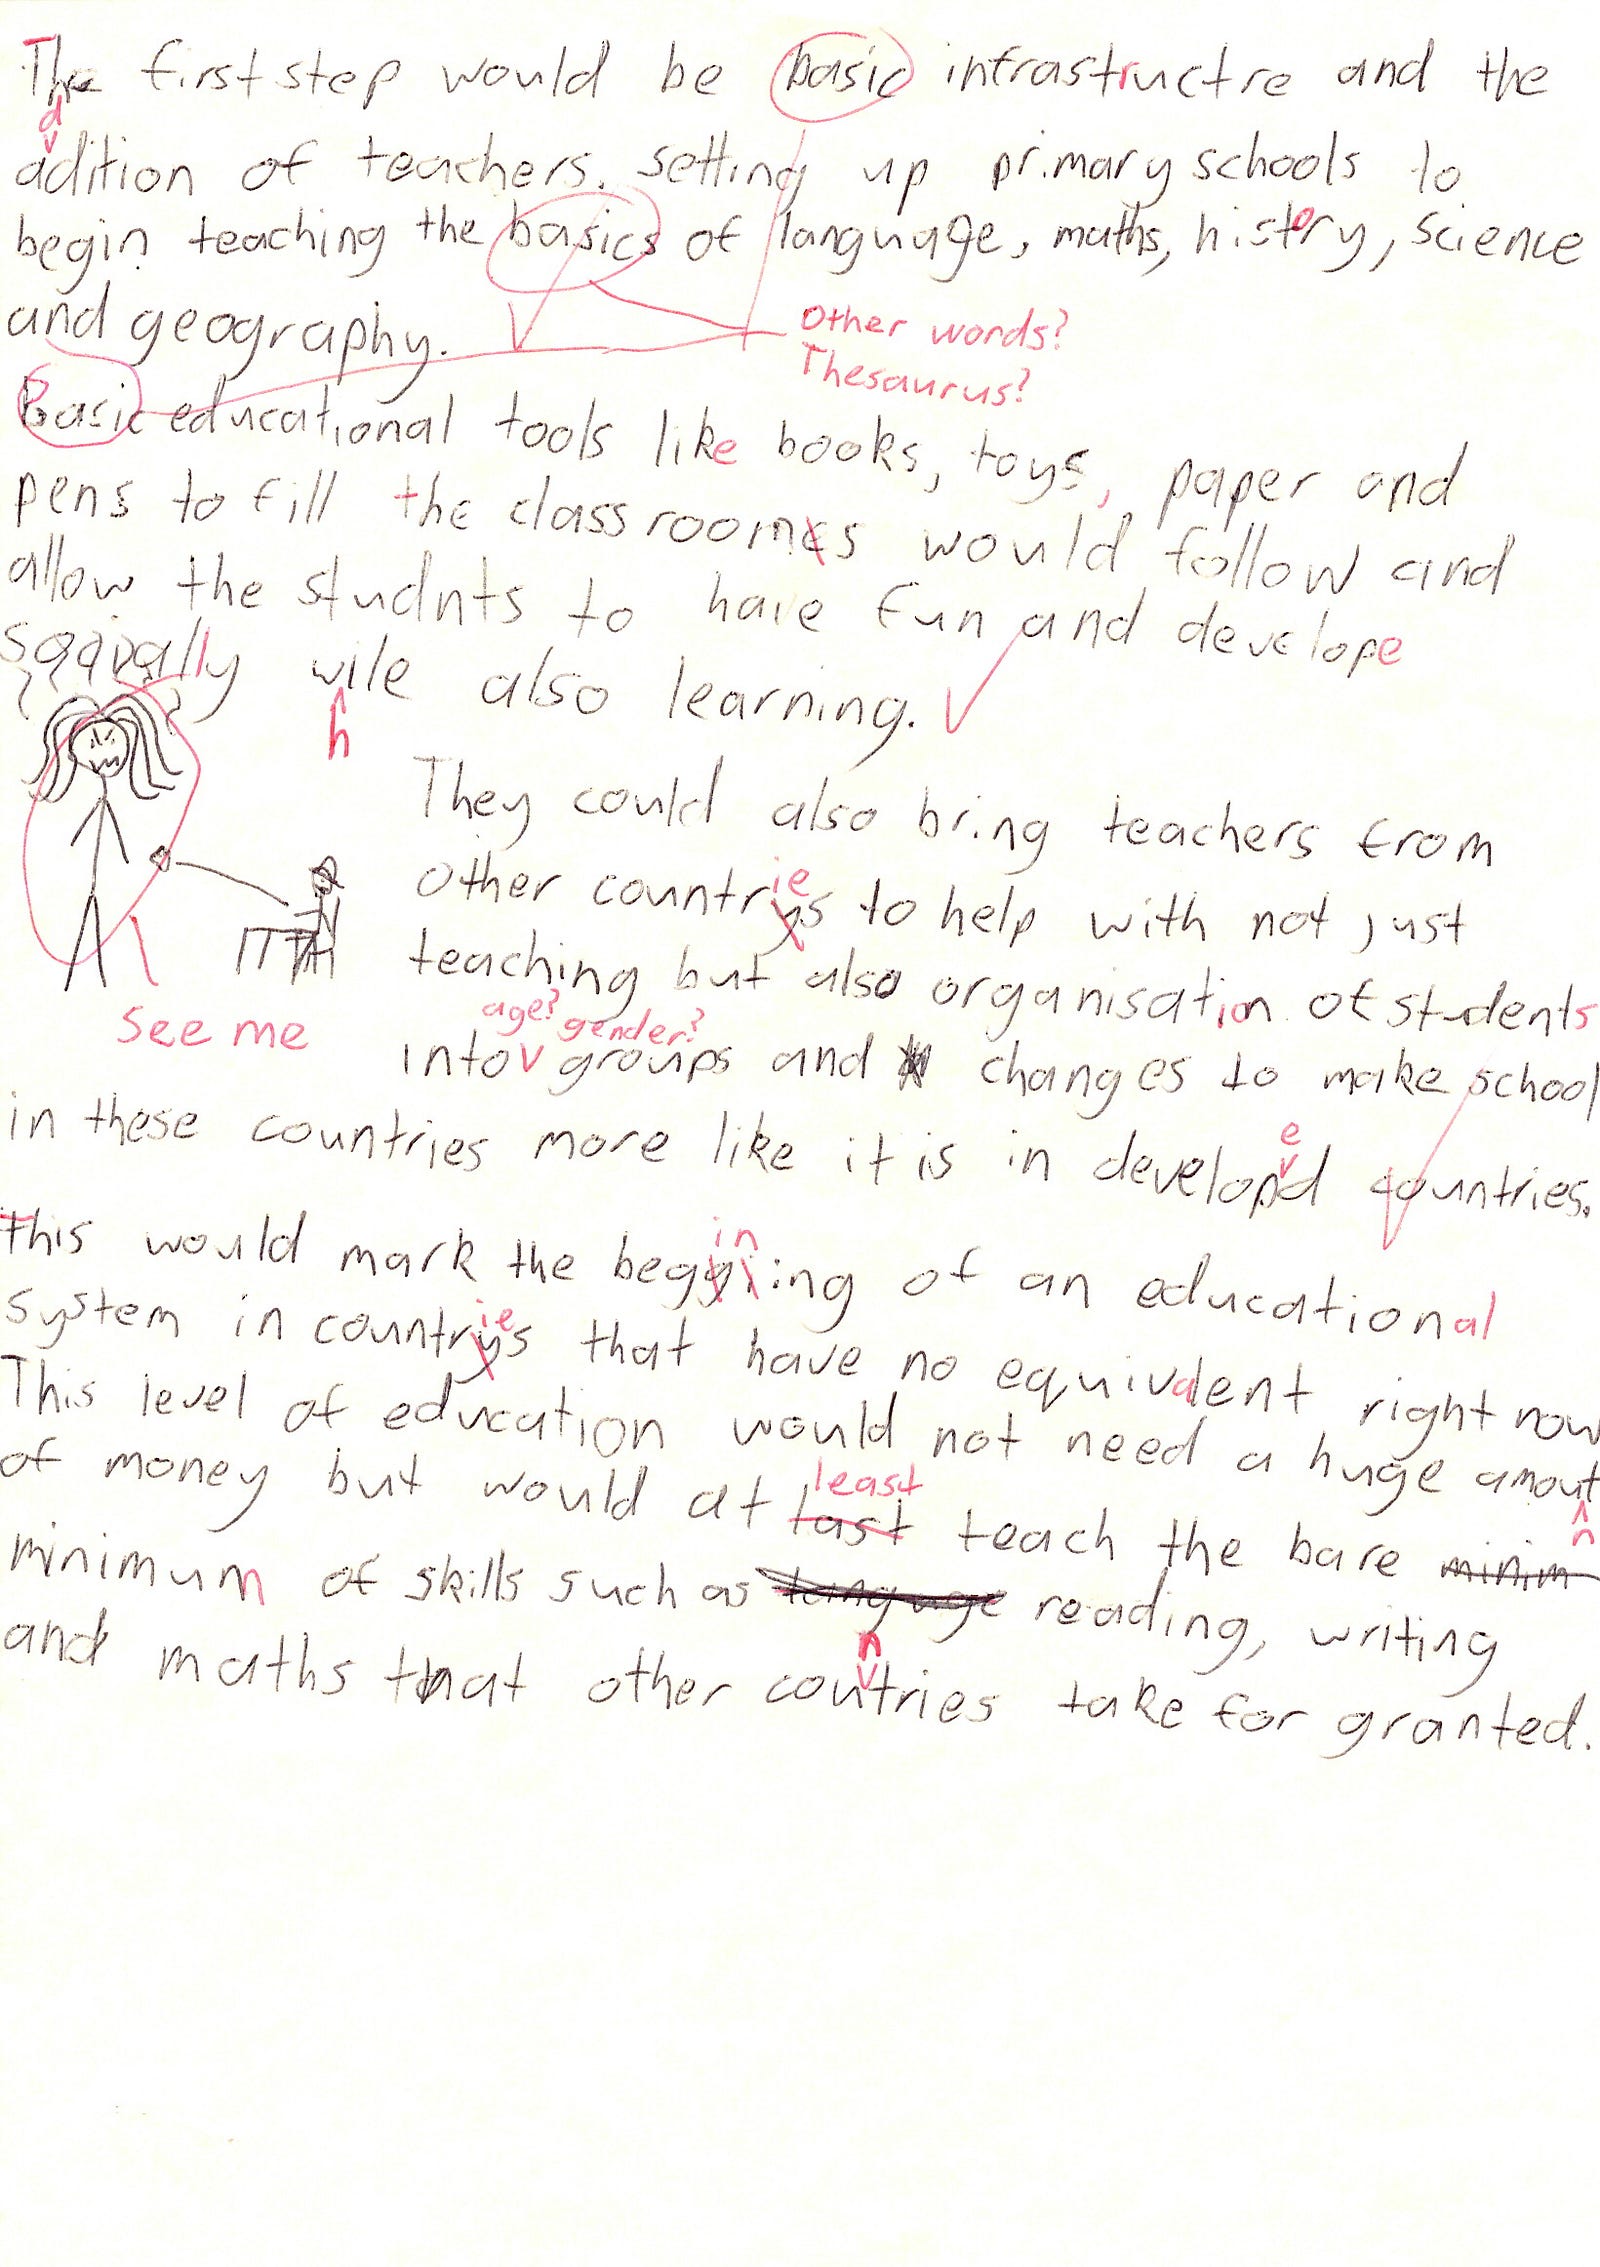 The first step would be basic infrastructre and the
d
adition of teachers. setting up primary schools to
begin teaching the basics of language, maths, history, science
and geography.
Other words?
Thesaurus?
Basic educational tools like books, toys, paper and
pens to fill the classrooms would follow and
allow the studnts to have fun and develope
wile also learning.
h
They could also bring teachers from
ie
other countrys to help with not just
teaching but also organisation of students
See me
age? gender?
into groups and changes to make school
in these countries more like it is in developd countries.
e
in
this would mark the begging of an educational
ie
system in countrys that have no equivalent right now
This level of education would not need a huge amout
n
of money but would at last teach the bare minim
least
minimum of skills such as language reading, writing
n
and maths that other coutries take for granted.